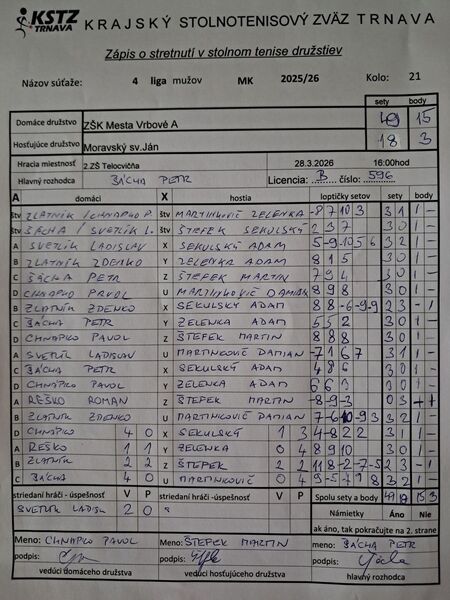 KSTZ TRNAVA KRAJSKÝ STOLNOTENISOVÝ ZVÄZ TRNAVA
Zápis o stretnutí v stolnom tenise družstiev
Názov súťaže: 4 liga mužov MK 2025/26 Kolo: 21
sety body
Domáce družstvo ZŠK Mesta Vrbové A 49 15
Hosťujúce družstvo Moravský sv.Ján 18 3
Hracia miestnosť 2.ZŠ Telocvičňa 28.3.2026 16:00hod
Hlavný rozhodca BÁCHA PETR Licencia: B číslo: 596
A domáci X hostia loptičky setov sety body
štv ZLATNÍK / CHNAPKO P. štv MARTINKOVIČ ZELENKA -8 7 10 3 3 1 1 -
štv BÁCHA / SVETLÍK L. štv ŠTEFEK SEKULSKÝ 2 3 7 3 0 1 -
A SVETLÍK LADISLAV X SEKULSKÝ ADAM 5 -9 -10 5 6 3 2 1 -
B ZLATNÍK ZDENKO Y ZELENKA ADAM 8 1 5 3 0 1 -
C BÁCHA PETR Z ŠTEFEK MARTIN 7 9 4 3 0 1 -
D CHNAPKO PAVOL U MARTINKOVIČ DAMIAN 8 9 8 3 0 1 -
B ZLATNÍK ZDENKO X SEKULSKÝ ADAM 8 8 -6 -9 -9 2 3 - 1
C BÁCHA PETR Y ZELENKA ADAM 5 5 2 3 0 1 -
D CHNAPKO PAVOL Z ŠTEFEK MARTIN 8 8 8 3 0 1 -
A SVETLÍK LADISLAV U MARTINKOVIČ DAMIAN -7 1 6 7 3 1 1 -
C BÁCHA PETR X SEKULSKÝ ADAM 4 8 6 3 0 1 -
D CHNAPKO PAVOL Y ZELENKA ADAM 6 6 3 3 0 1 -
A REŠKO ROMAN Z ŠTEFEK MARTIN -8 -9 -3 0 3 - 1
B ZLATNÍK ZDENKO U MARTINKOVIČ DAMIAN 7 -6 10 -9 3 3 2 1 -
D CHNAPKO 4 0 X SEKULSKÝ 1 3 4 -8 2 2 3 1 1 -
A REŠKO 1 1 Y ZELENKA 0 4 8 9 10 3 0 1 -
B ZLATNÍK 2 2 Z ŠTEFEK 2 2 11 8 -2 -7 -5 2 3 - 1
C BÁCHA 4 0 U MARTINKOVIČ 0 4 9 -5 7 -9 8 3 2 1 -
striedaní hráči - úspešnosť V P striedaní hráči - úspešnosť V P Spolu sety a body 49 18 15 3
SVETLÍK LADISL. 2 0 Námietky Áno Nie
ak áno, tak pokračujte na 2. strane
Meno: CHNAPKO PAVOL Meno: ŠTEFEK MARTIN meno: BÁCHA PETR
podpis: podpis: podpis:
vedúci domáceho družstva vedúci hosťujúceho družstva hlavný rozhodca